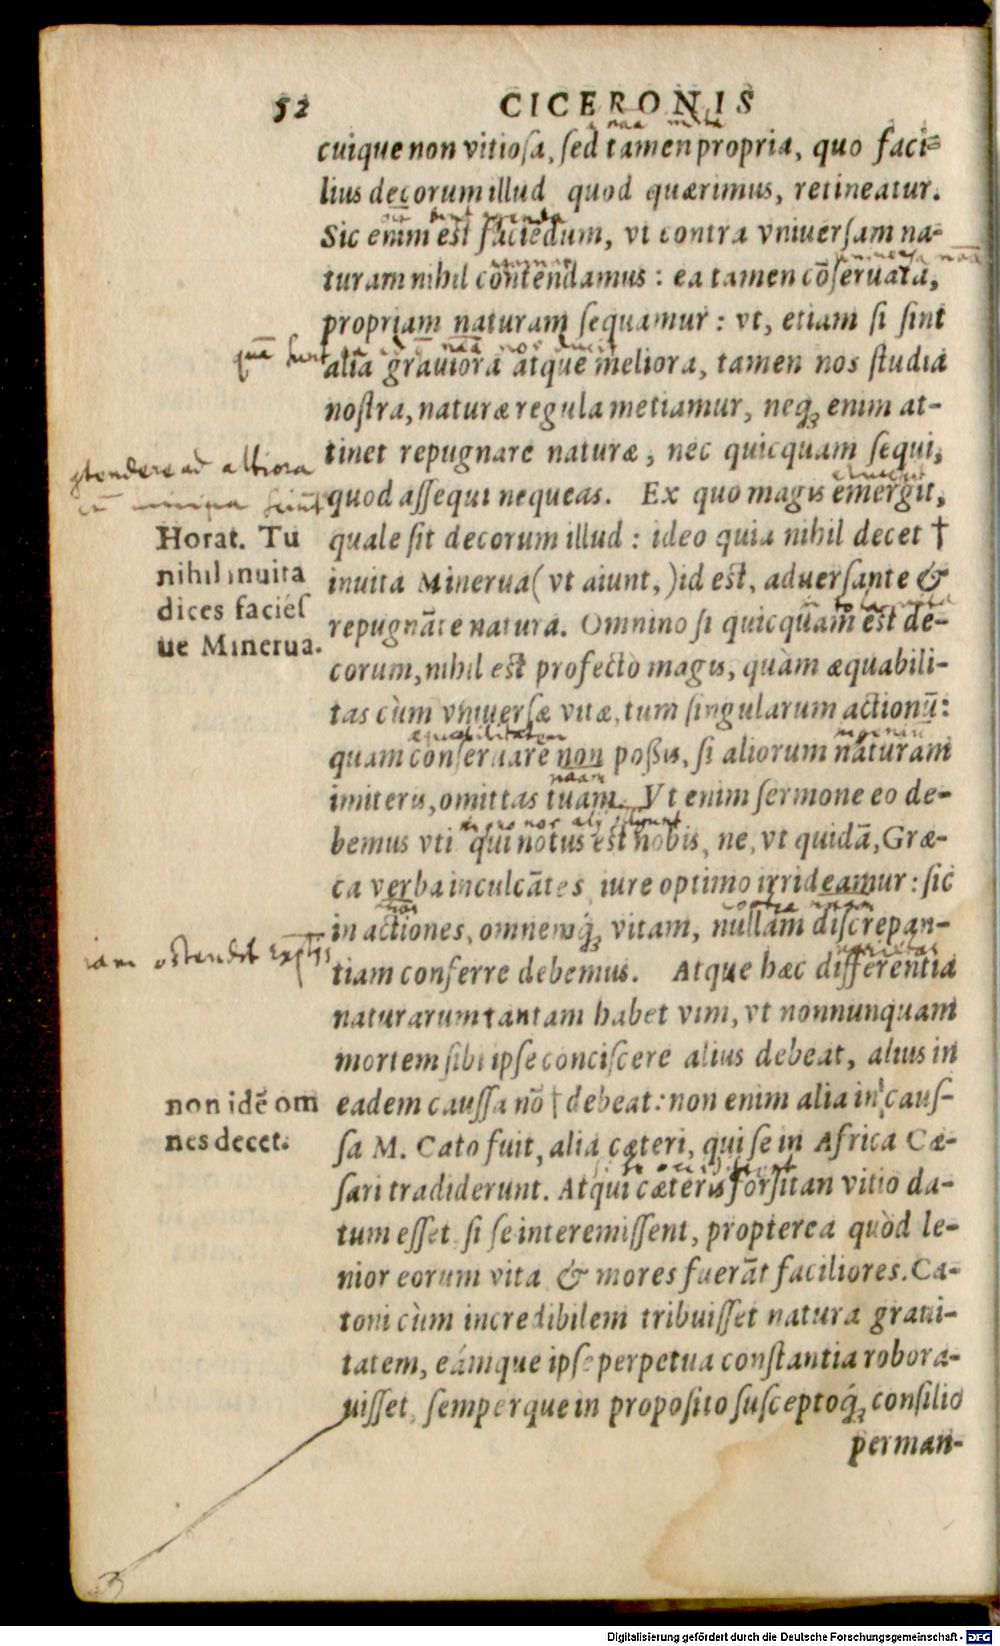 52 CICERONIS
cuique non vitiosa, sed tamen propria, quo faci-
lius decorum illud quod quærimus, retineatur.
Sic enim est faciēdum, vt contra vniuersam na-
turam nihil contendamus: ea tamen cōseruata,
propriam naturam sequamur: vt, etiam si sint
quæ sunt
alia grauiora atque meliora, tamen nos studia
nostra, naturæ regula metiamur, neq; enim at-
tinet repugnare naturæ, nec quicquam sequi,
ad altiora
quod assequi nequeas. Ex quo magis emergit,
quale sit decorum illud: ideo quia nihil decet †
Horat. Tu
nihil inuita
dices faciés
ue Minerua.
inuita Minerua (vt aiunt,) id est, aduersante &
repugnāte natura. Omnino si quicquam est de-
corum, nihil est profectò magis, quàm æquabili-
tas cùm vniuersæ vitæ, tum singularum actionū:
æquabilitatem
quam conseruare non possis, si aliorum naturam
imiteris, omittas tuam. Vt enim sermone eo de-
bemus vti qui notus est nobis, ne, vt quidā, Græ-
ca verba inculcātes, iure optimo irrideamur: sic
in actiones, omnemq́; vitam, nullam discrepan-
iam ostendit
varietas
tiam conferre debemus. Atque hæc differentia
naturarum tantam habet vim, vt nonnunquam
mortem sibi ipse consciscere alius debeat, alius in
non idē om
nes decet.
eadem caussa nō † debeat: non enim alia in caus-
sa M. Cato fuit, alia cæteri, qui se in Africa Cæ-
sari tradiderunt. Atqui cæteris forsitan vitio da-
tum esset si se interemissent, propterea quòd le-
nior eorum vita & mores fuerāt faciliores. Ca-
toni cùm incredibilem tribuisset natura graui-
tatem, eámque ipse perpetua constantia robora-
uisset, semperque in proposito susceptoq́; consilio
perman-
Digitalisierung gefördert durch die Deutsche Forschungsgemeinschaft - DFG